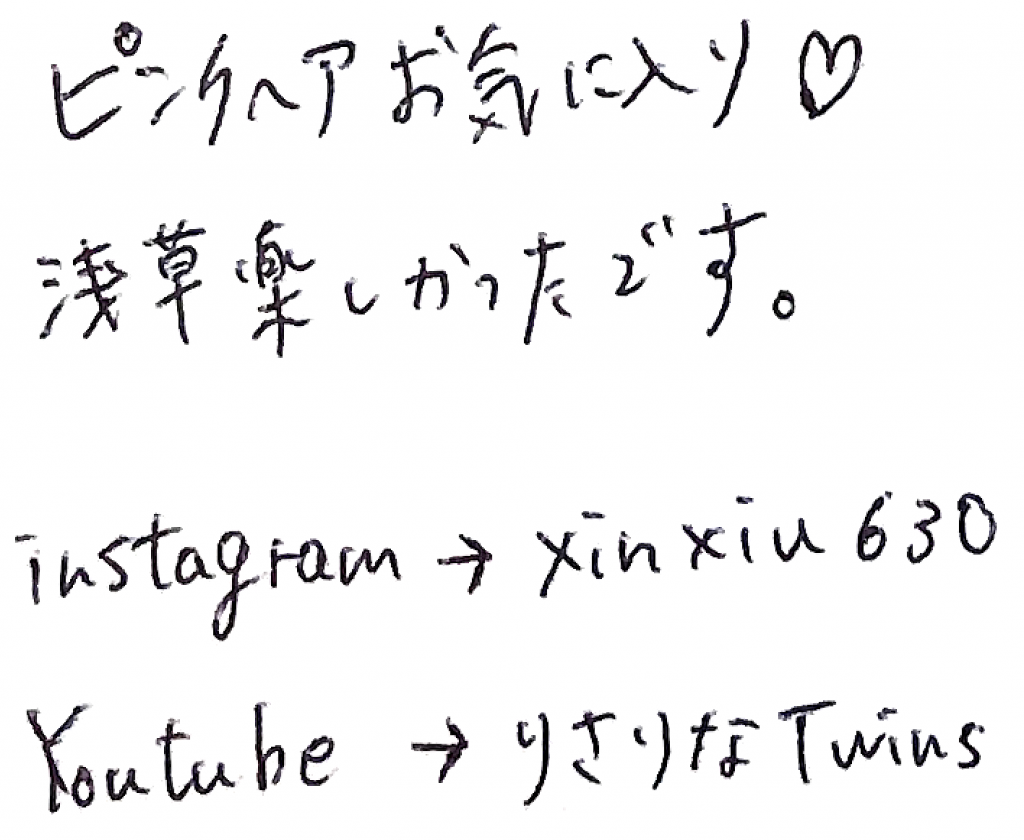 ピンクヘアお気に入り♡
浅草楽しかったです。
instagram → xinxiu630
Youtube → りさりなTwins